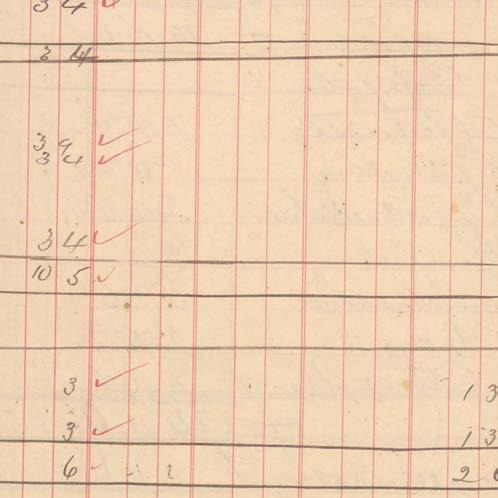 3 4 ✓
3 4
3 9 ✓
3 4 ✓
3 4 ✓
10 5 ✓
3 ✓ 1 3
3 ✓ 1 3
6 2